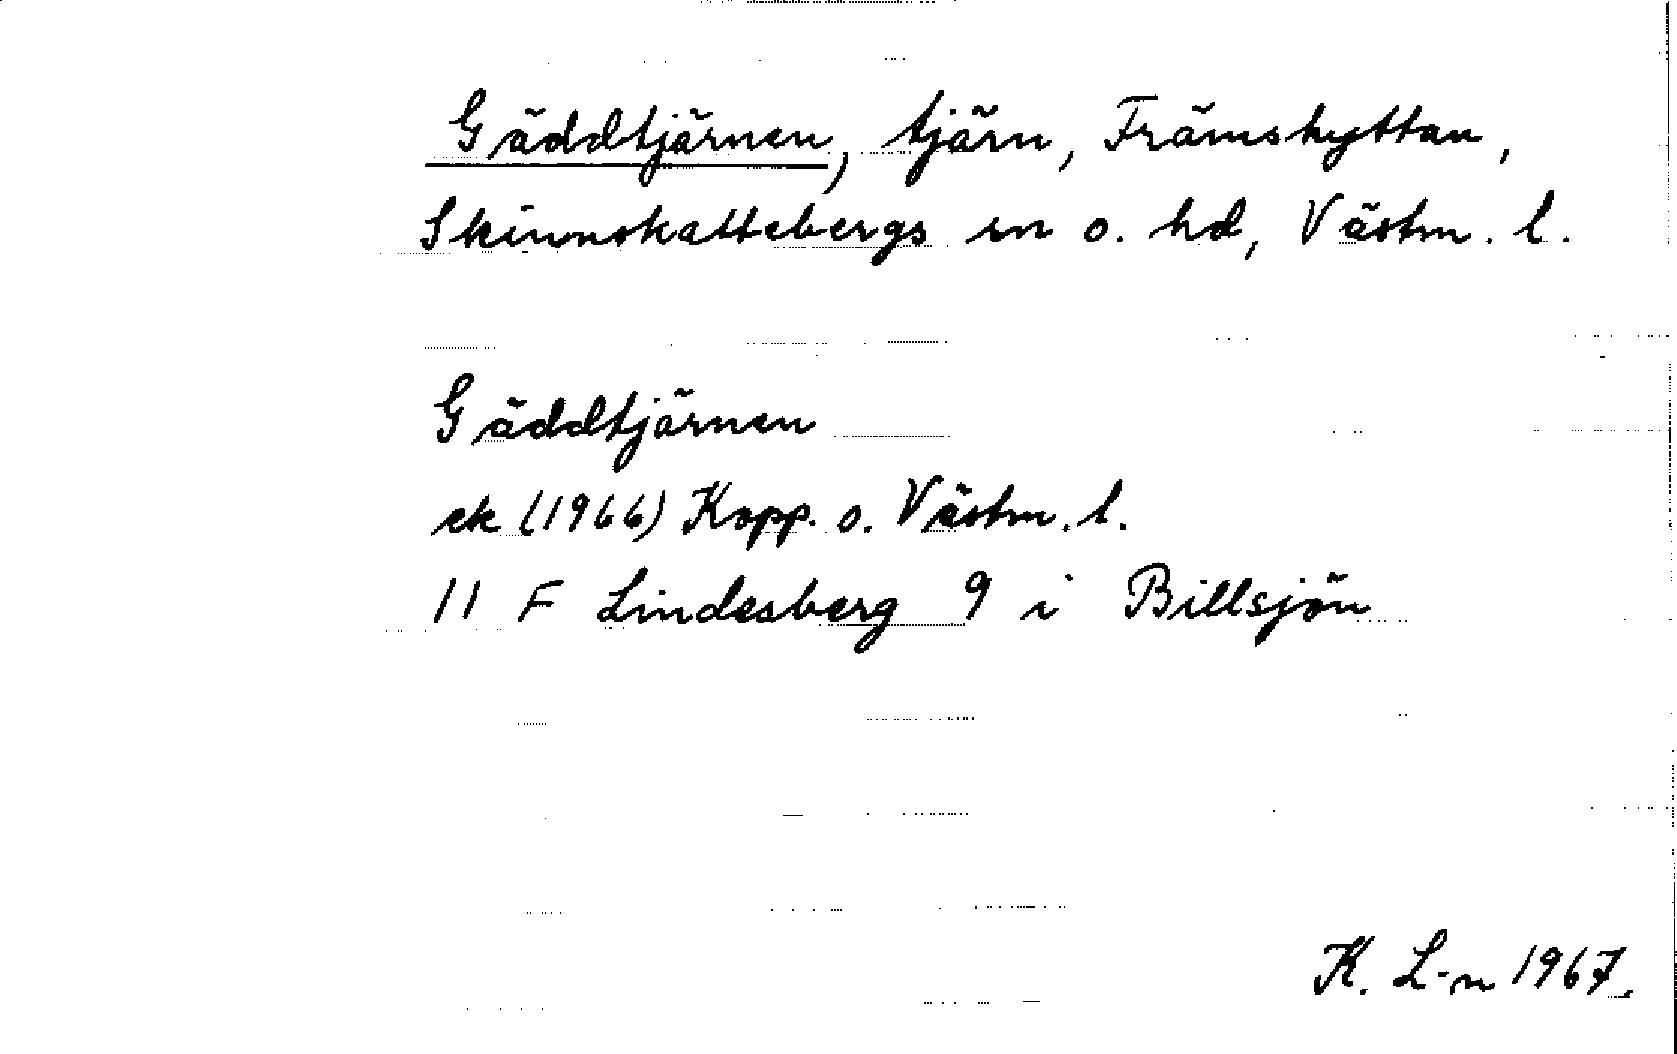 Gäddtjärnen, tjärn, Främshyttan,
Skinnskattebergs sn o. hd, Västm. l.
Gäddtjärnen
ek (1966) Kopp. o. Västm. l.
11 F Lindesberg 9 i Billsjön
K. L-n 1967.